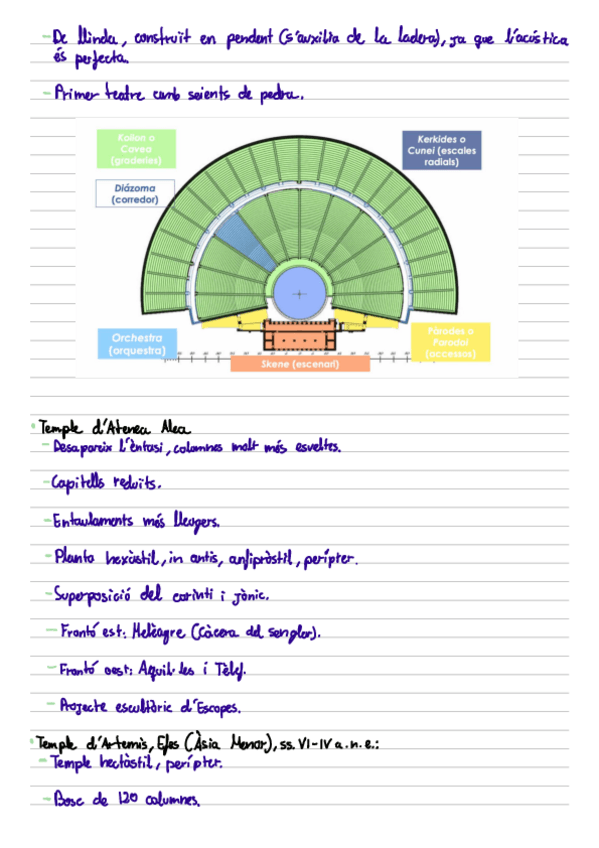 - De llinda, construït en pendent (s'auxilia de la ladera), ja que l'acústica
és perfecta.
- Primer teatre amb seients de pedra.
Koilon o
Cavea
(graderies)
Kerkides o
Cunei (escales
radials)
Diázoma
(corredor)
Orchestra
(orquestra)
Párodes o
Parodoi
(accessos)
Skene (escenari)
• Temple d'Atenea Alea
- Desapareix l'èntasi, columnes molt més esveltes.
- Capitells reduïts.
- Entaulaments més lleugers.
- Planta hexàstil, in antis, anfipròstil, perípter.
- Superposició del corinti i jònic.
- Frontó est: Meleagre (Càcera del senglar).
- Frontó oest: Aquil·les i Tèlef.
- Projecte escultòric d'Escopes.
• Temple d'Artemis, Efes (Àsia Menor), ss. VI-IV a.n.e.:
- Temple hectàstil, perípter.
- Bosc de 120 columnes.